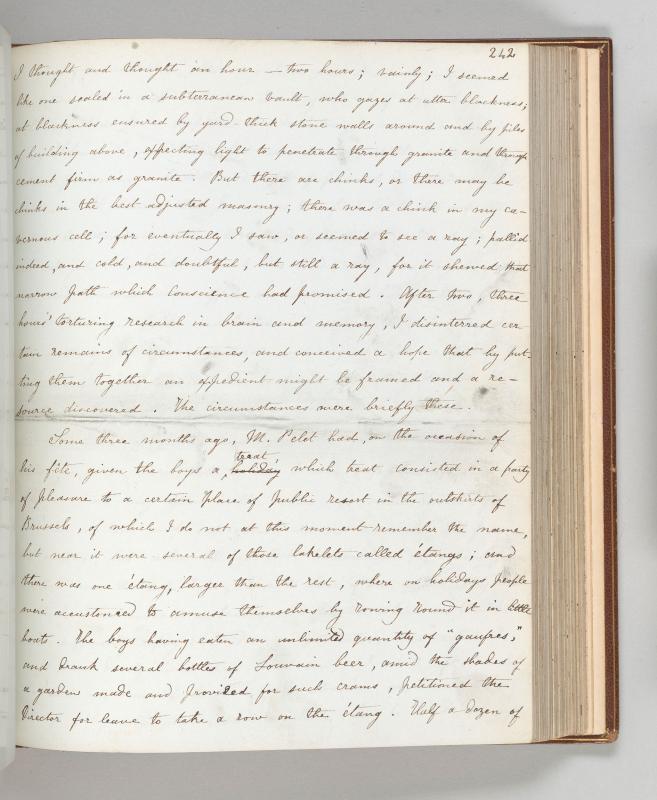 242
I thought and thought an hour — two hours; vainly; I seemed
like one sealed in a subterranean vault, who gazes at utter blackness;
at blackness ensured by yard-thick stone walls around and by piles
of building above, expecting light to penetrate through granite and through
cement firm as granite. But there are chinks, or there may be
chinks in the best adjusted masonry; there was a chink in my ca-
vernous cell; for eventually I saw, or seemed to see a ray; pallid
indeed, and cold, and doubtful, but still a ray, for it shewed that
narrow path which Conscience had promised. After two, three
hours' torturing research in brain and memory, I disinterred cer-
tain remains of circumstances, and conceived a hope that by put-
ting them together an expedient might be framed and a re-
source discovered. The circumstances were briefly these.
Some three months ago, M. Pelet had, on the occasion of
treat
his fête, given the boys a holiday which treat consisted in a party
of pleasure to a certain place of public resort in the outskirts of
Brussels, of which I do not at this moment remember the name,
but near it were several of those lakelets called étangs; and
there was one étang, larger than the rest, where on holidays people
were accustomed to amuse themselves by rowing round it in little
boats. The boys having eaten an unlimited quantity of "gaufres,"
and drank several bottles of Louvain beer, amid the shades of
a garden made and provided for such crams, petitioned the
Director for leave to take a row on the étang. Half a dozen of